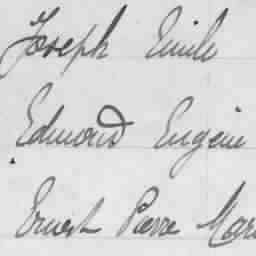 Joseph Emile
Edmond Eugène
Ernest Pierre Mari